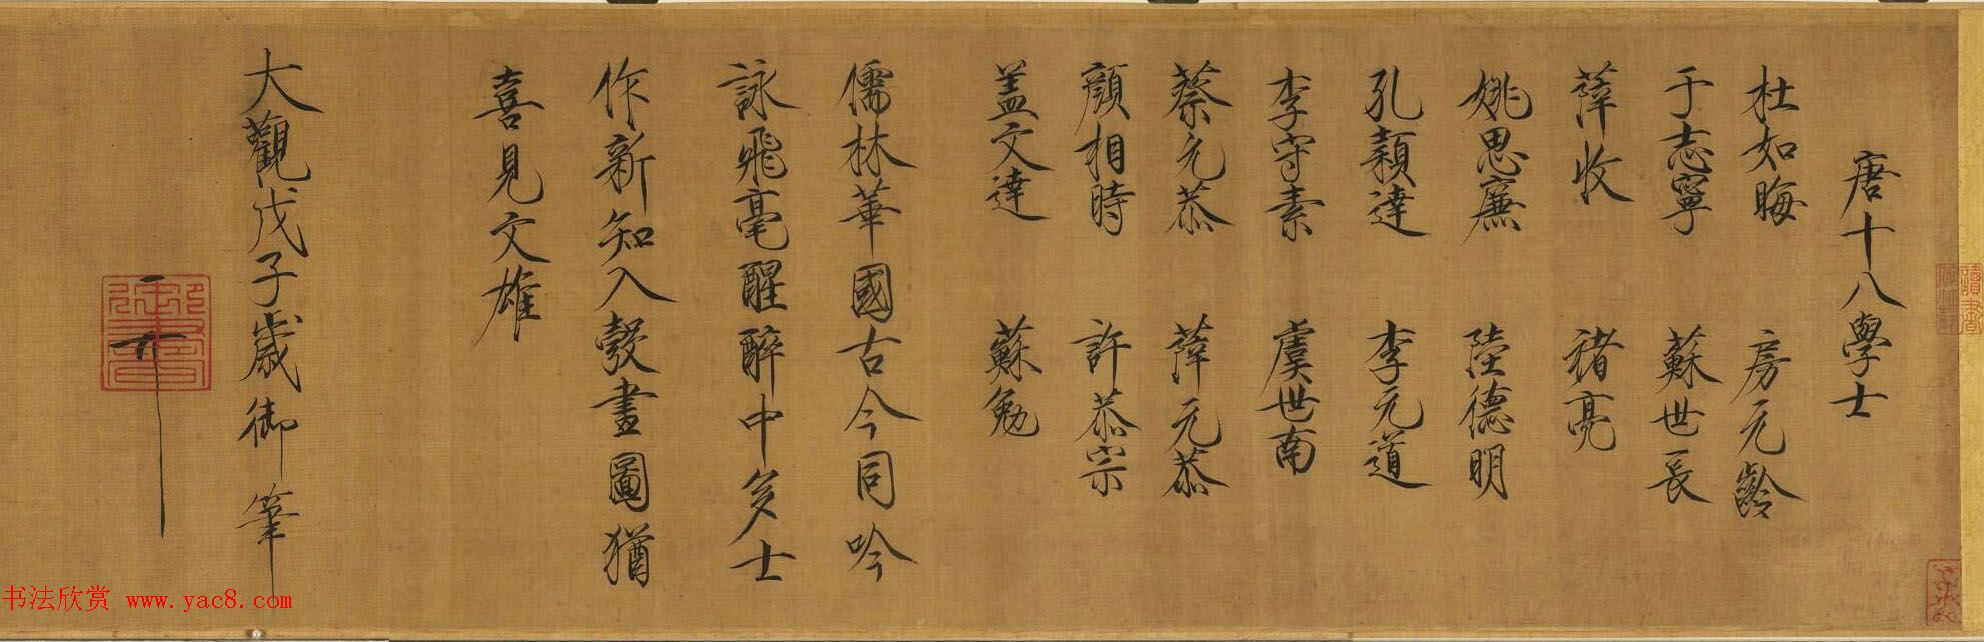 唐十八學士
杜如晦　房元齡
于志寧　蘇世長
薛收　褚亮
姚思廉　陸德明
孔穎達　李元道
李守素　虞世南
蔡元恭　薛元恭
顏相時　許恭宗
盖文達　蘇勉
儒林華國古今同吟
詠飛毫醒醉中多士
作新知入彀畫圖猶
喜見文雄
大觀戊子歲御筆
御書
书法欣赏 www.yac8.com